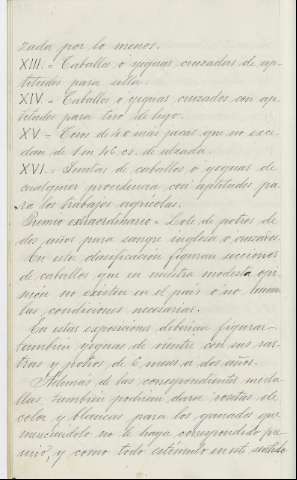 zada por lo menos.
XIII.- Caballos o yeguas cruzadas de ap-
titudes para silla.
XIV.- Caballos o yeguas cruzados con ap-
titudes para tiro de lujo.
XV.- Tiros de 4 o más jacas que no exce-
dan de 1 m 46 cs. de alzada.
XVI.- Jemelas de caballos o yeguas de
cualquier procedencia con aptitudes pa-
ra los trabajos agrícolas.
Premio extraordinario.- Lote de potros de
dos años pura sangre inglesa o cruzados.
En esta clasificación figuran secciones
de caballos que en nuestra modesta opi-
nión no existen en el país o no tienen
las condiciones necesarias.
En estas exposiciones deberían figurar
también yeguas de vientre con sus ras-
tras y potros de 6 meses a dos años.
Además de las correspondientes meda-
llas, también podrían darse rosetas de
color y blancas para los ganados que
mereciéndolo no le haya correspondido pre-
mio, y como todo estímulo en este sentido